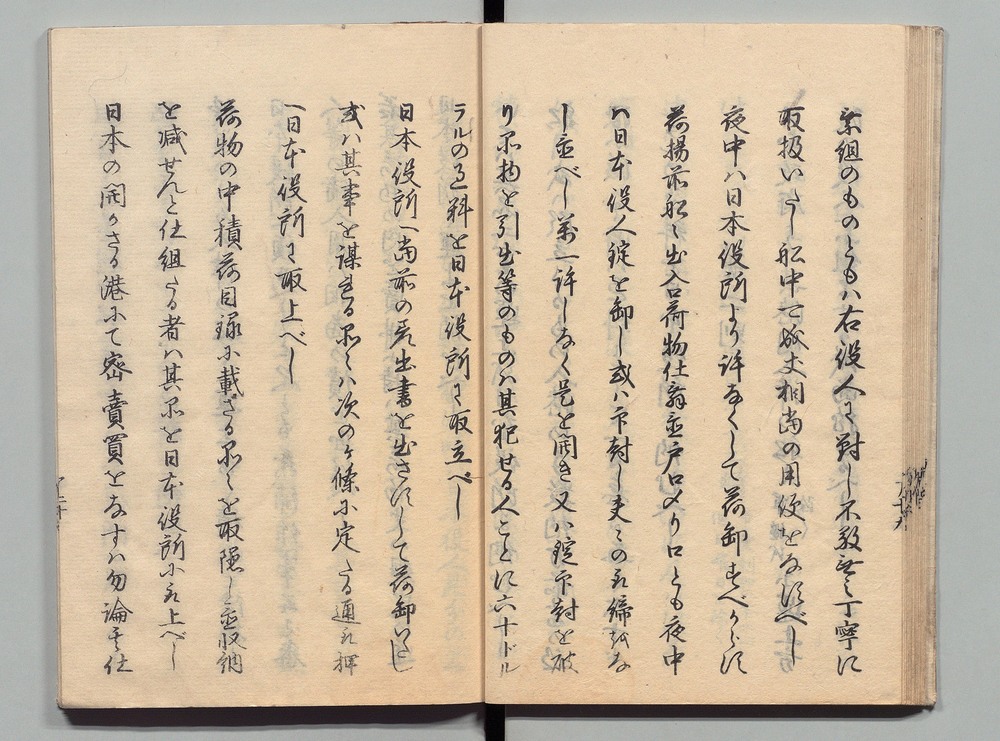 乗組のものともハ右役人に對し不敬無之丁寧に
取扱いたし船中にて成丈相当の用便をなすへし
夜中ハ日本役所より許なくして荷卸すへからす
荷揚前船之出入口荷物仕舞置戸口〆り口とも夜中
ハ日本役人錠を卸し或ハ印封し夫々の取締をな
し置べし萬一許しなく是を開き又ハ錠印封を破
り品物を引出等のものハ其犯せる人ことに六十ドル
ラルの過料を日本役所に取立べし
日本役所へ当前の差出書を出さすして荷卸いたし
或ハ其事を謀れる品々ハ次のケ條に定たる通取押
へ日本役所に取上べし
荷物の中積荷目録に載さる品々を取隠し置収納
を減せんと仕組たる者ハ其品を日本役所に取上べし
日本の開かさる港にて密賣買をなすハ勿論其仕